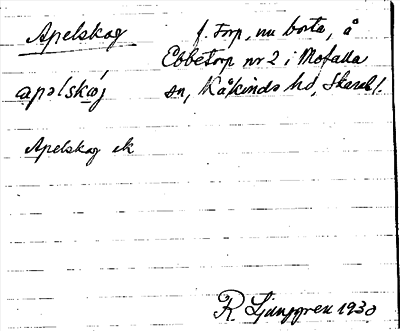 Apelskog f. torp, nu borta, å
Ebbetorp nr 2 i Mofalla
apəlskɷ́j sn, Kåkinds hd, Skarab l.
Apelskog ek
R. Ljunggren 1930